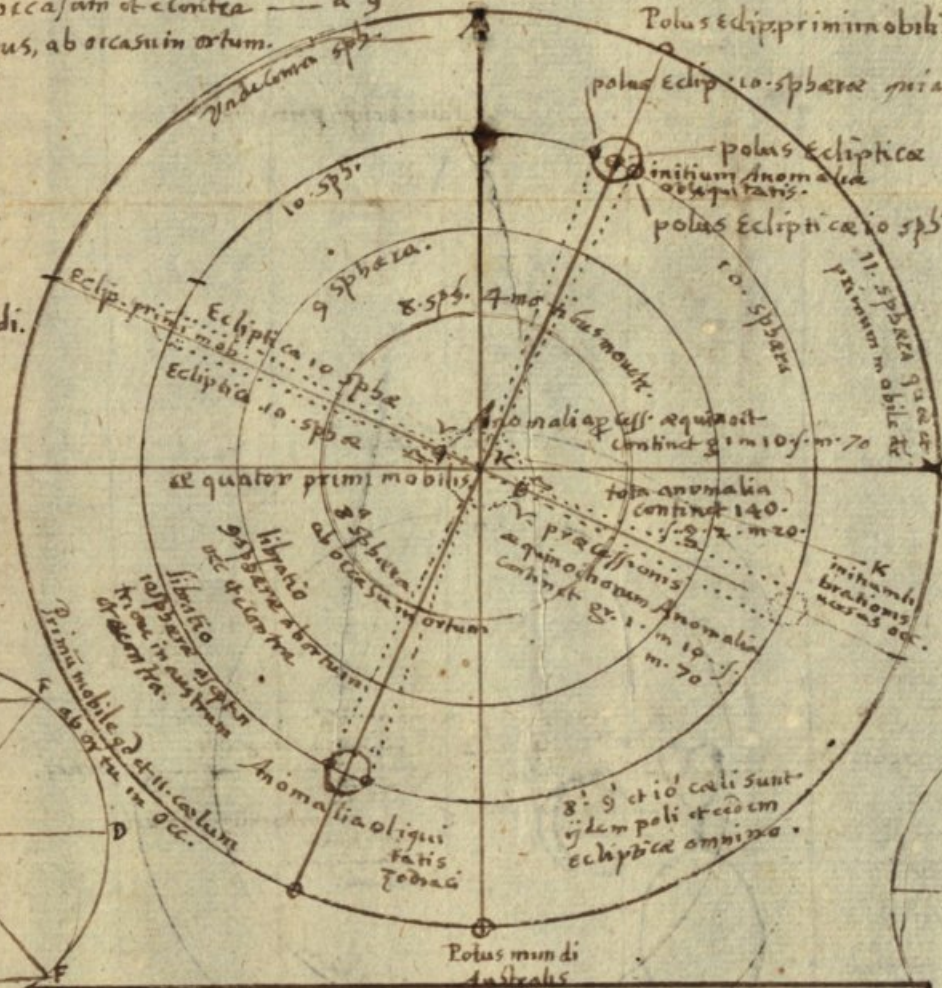 occasum et econtra — a 9
us, ab occasu in ortum.
Polus Eclip. primi mobil
polus Eclip. 10. sphæræ quia
A
undecima sph.
polus Eclipticæ
initium Anomaliæ
obliquitatis.
polus Eclipticæ 10 sph
10. sph.
9 sphæra.
8. sph. 4 motibus mouetr.
10. sphæra
11. sphæra
primum mobile
di.
Eclip. primi mob.
Ecliptica 10 sphæ
Ecliptica 10. sphæ
Anomalia æquinoct
continet g 1 m 10 s. m. 70
K
æquator primi mobilis
tota anomalia
continet 140.
s. g. 2. m 20.
præcessionis
æquinoctiorum Anomalia
continet gr. 1. m 10. s.
m. 70
K
initium li
brationis
occ.
8 sphæra
ab occasu in ortum
libratio
9 sphæræ ab ortu in
occ et econtra
libratio
10 sphæræ a septen
trione in austrum
et econtra.
Primũ mobile qd et 11. cælum
ab ortu in
occ.
D
F
Anomalia obliqui
tatis
Zodiaci
8. 9 et 10 cæli sunt
ijdem poli et eædem
eclipticæ omnino.
Polus mundi
Australis